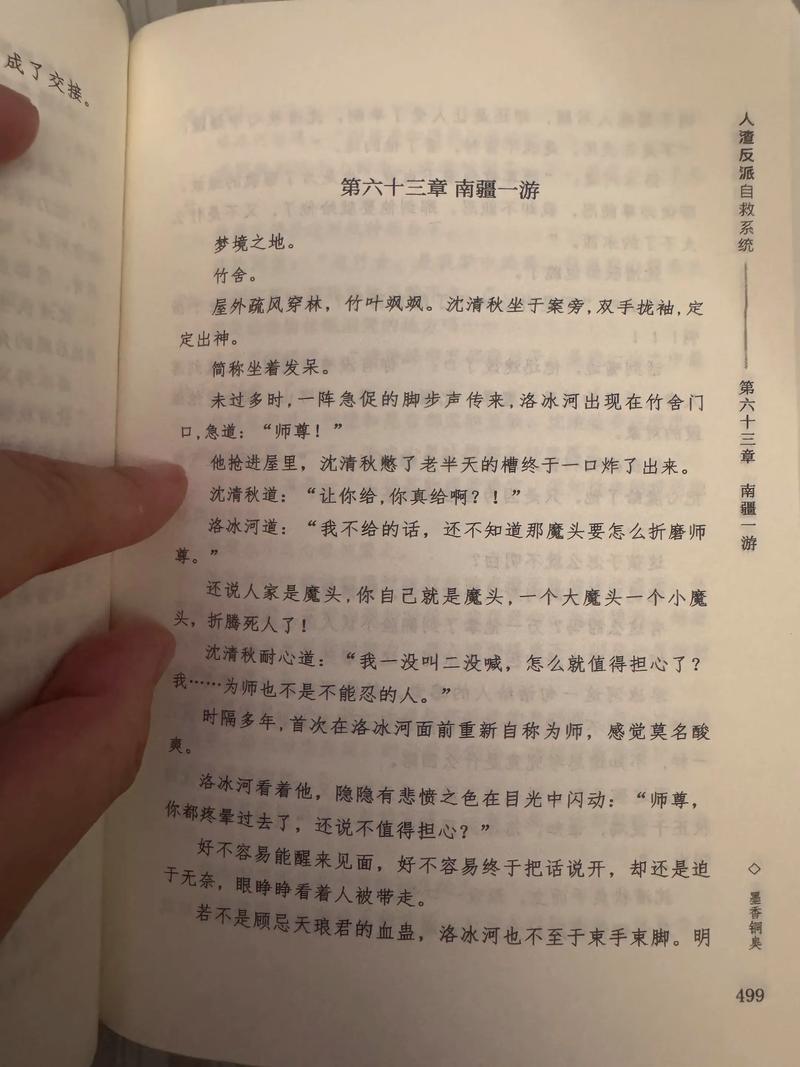 成了交接。
第六十三章 南疆一游
梦境之地。
竹舍。
屋外疏风穿林，竹叶飒飒。沈清秋坐于案旁,双手拢袖,定
定出神。
简称坐着发呆。
未过多时,一阵急促的脚步声传来,洛冰河出现在竹舍门
口,急道：“师尊！”
他抢进屋里，沈清秋憋了老半天的槽终于一口炸了出来。
沈清秋道：“让你给,你真给啊？！”
洛冰河道：“我不给的话，还不知道那魔头要怎么折磨师
尊。”
还说人家是魔头,你自己就是魔头,一个大魔头一个小魔
头，折腾死人了！
沈清秋耐心道：“我一没叫二没喊，怎么就值得担心了？
我……为师也不是不能忍的人。”
时隔多年,首次在洛冰河面前重新自称为师，感觉莫名酸
爽。
洛冰河看着他，隐隐有悲愤之色在目光中闪动：“师尊，
你都疼晕过去了，还说不值得担心？”
好不容易能醒来见面，好不容易终于把话说开，却还是迫
于无奈，眼睁睁看着人被带走。
若不是顾忌天琅君的血蛊，洛冰河也不至于束手束脚。明
人渣反派自救系统——第六十三章 南疆一游
◇ 墨香铜臭
499